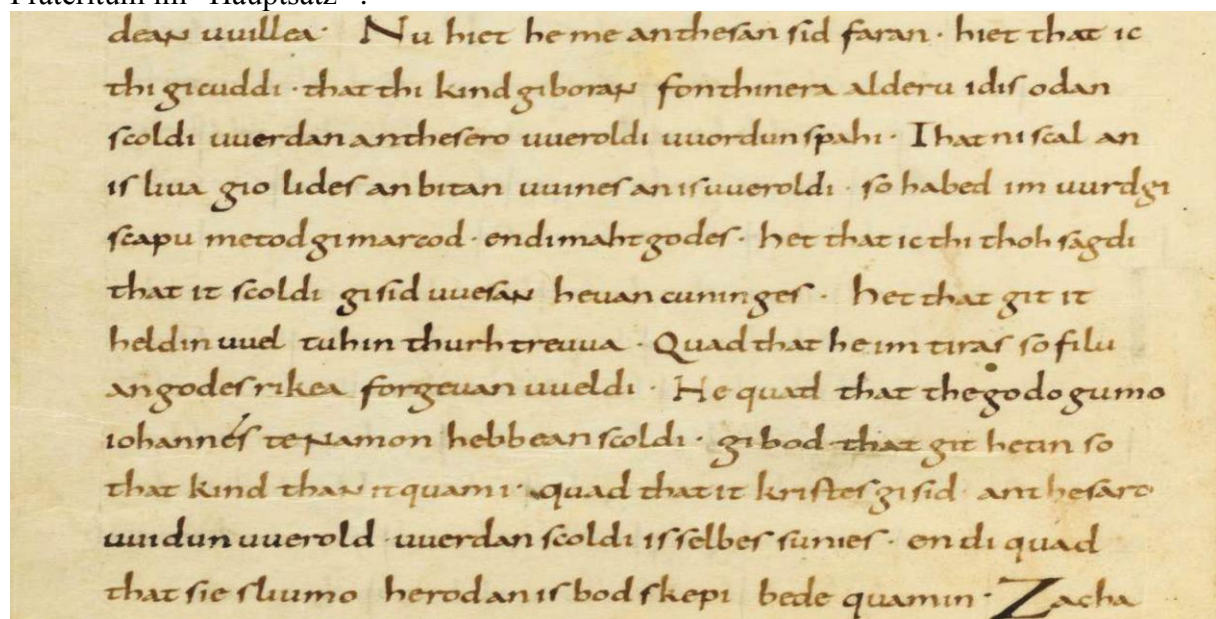 Präteritum im "Hauptsatz".
dean uuillea· Nu hiet he me anthesan sid faran· hiet that ic
thi gicuddi· that thi kind giboran fonthinera alderu idis odan
scoldi uuerdan anthesero uueroldi uuordun spahi· That ni scal an
is liua gio lides anbitan uuines an is uueroldi· so habed im uurdgi
scapu metod gimarcod· endi maht godes· het that ic thi thoh sagdi
that it scoldi gisid uuesan hevan cuninges· het that git it
heldin uuel tuhin thurh treuua· Quad that he im tiras so filu
angodes rikea forgevan uueldi· He quad that the godo gumo
iohannes te namon hebbean scoldi· gibod that git hetin so
that kind than it quami· quad that it kristes gisid anthesaro
uuidun uuerold uuerdan scoldi is selbes sunies· endi quad
that sie sliumo herod an is bodskepi bede quamin· Zacha